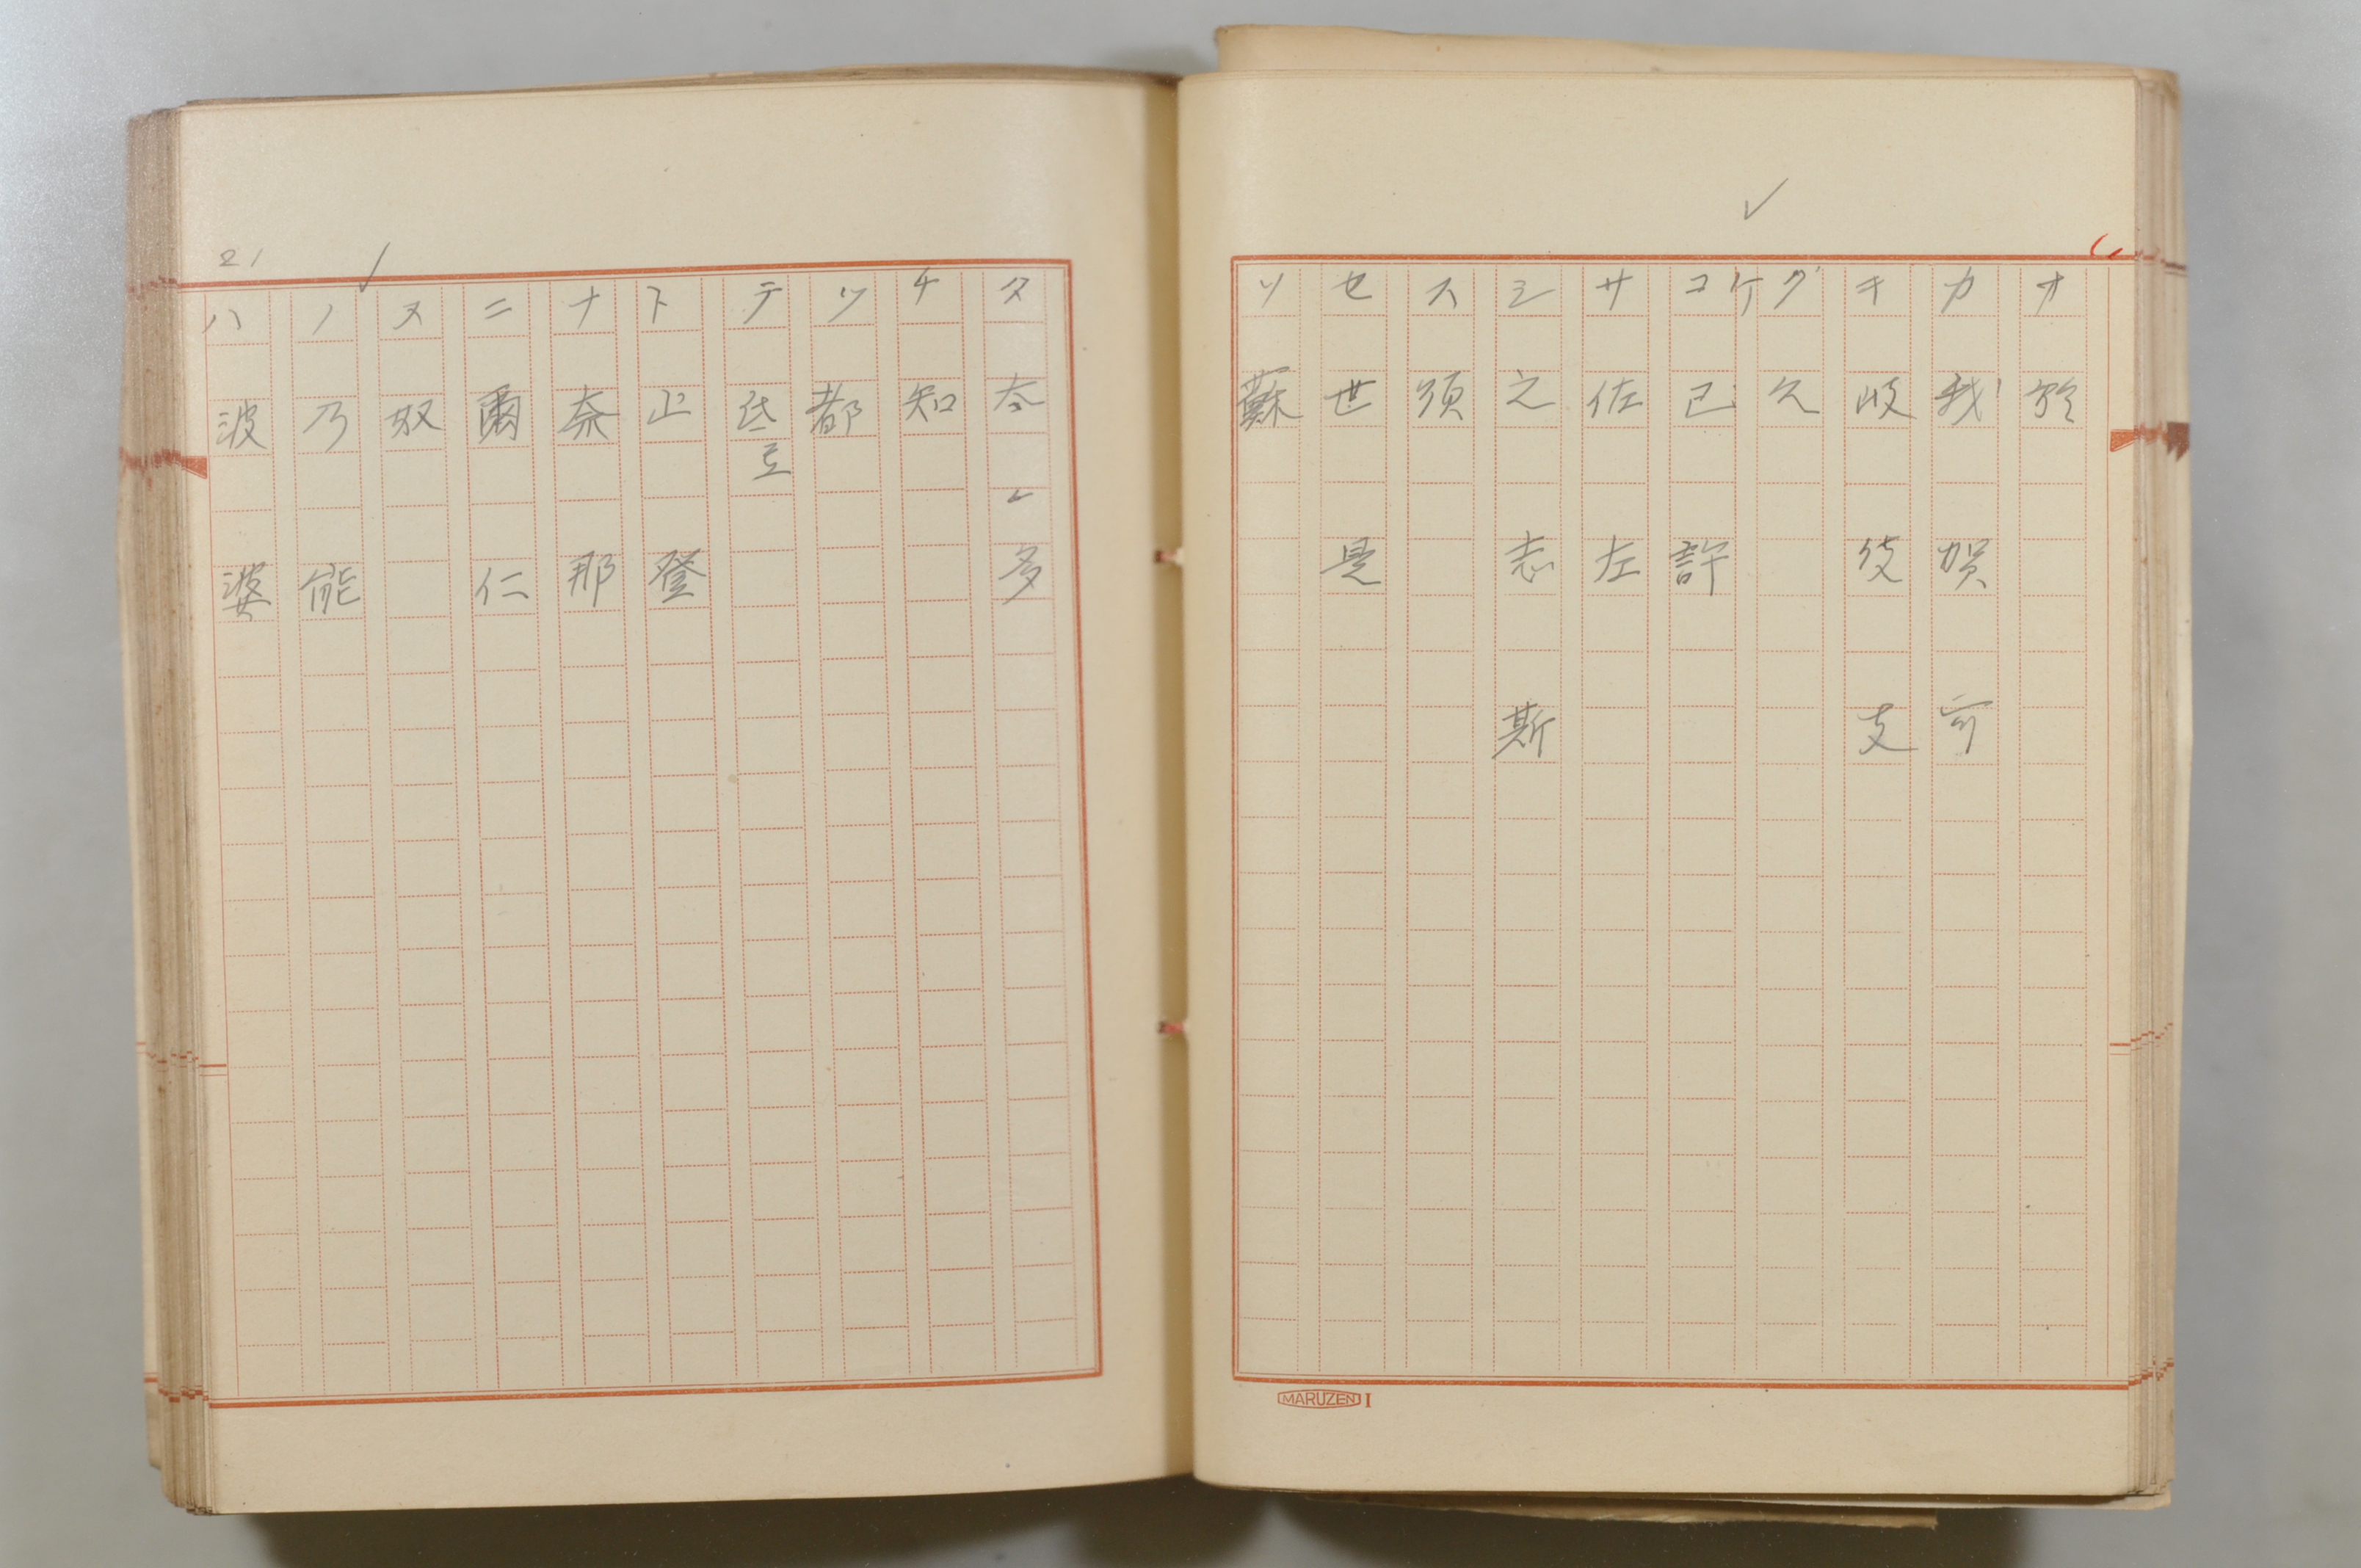 オ 於
カ 我 賀 可
キ 岐 伎 支
ク 久
ケ
コ 己 許
サ 佐 左
シ 之 志 斯
ス 須
セ 世 是
ソ 蘇
MARUZEN I
タ 太 多
チ 知
ツ 都
テ 氐 弖
ト 止 登
ナ 奈 那
ニ 爾 仁
ヌ 奴
ノ 乃 能
ハ 波 婆
21